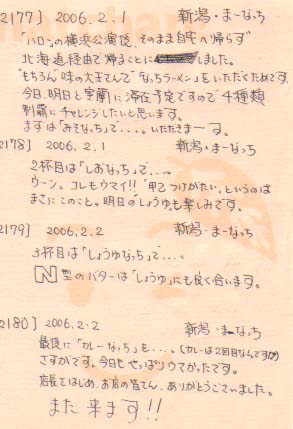 2177] 2006.2.1 新潟・まーなっち
「ハロー」の横浜公演後、そのまま自宅へ帰らず
北海道経由で帰ることにしました。
もちろん「味の大王」さんで「なっちラーメン」をいただくためです。
今日、明日と室蘭に滞在予定ですので4種類
制覇にチャレンジしたいと思います。
まずは「みそなっち」で…。いただきまーす。
2178] 2006.2.1 新潟・まーなっち
2杯目は「しおなっち」で…。
ウーン。コレもウマイ!!「甲乙つけがたい」というのは
まさにこのこと。明日の「しょうゆ」も楽しみです。
2179] 2006.2.2 新潟・まーなっち
3杯目は「しょうゆなっち」で…。
N型のバターは「しょうゆ」にも良く合います。
2180] 2006.2.2 新潟・まーなっち
最後に「カレーなっち」を…。(カレーは2回目なんですが)
さすがです。今日もやっぱりウマかったです。
店長をはじめ、お店の皆さん、ありがとうございました。
また来ます!!